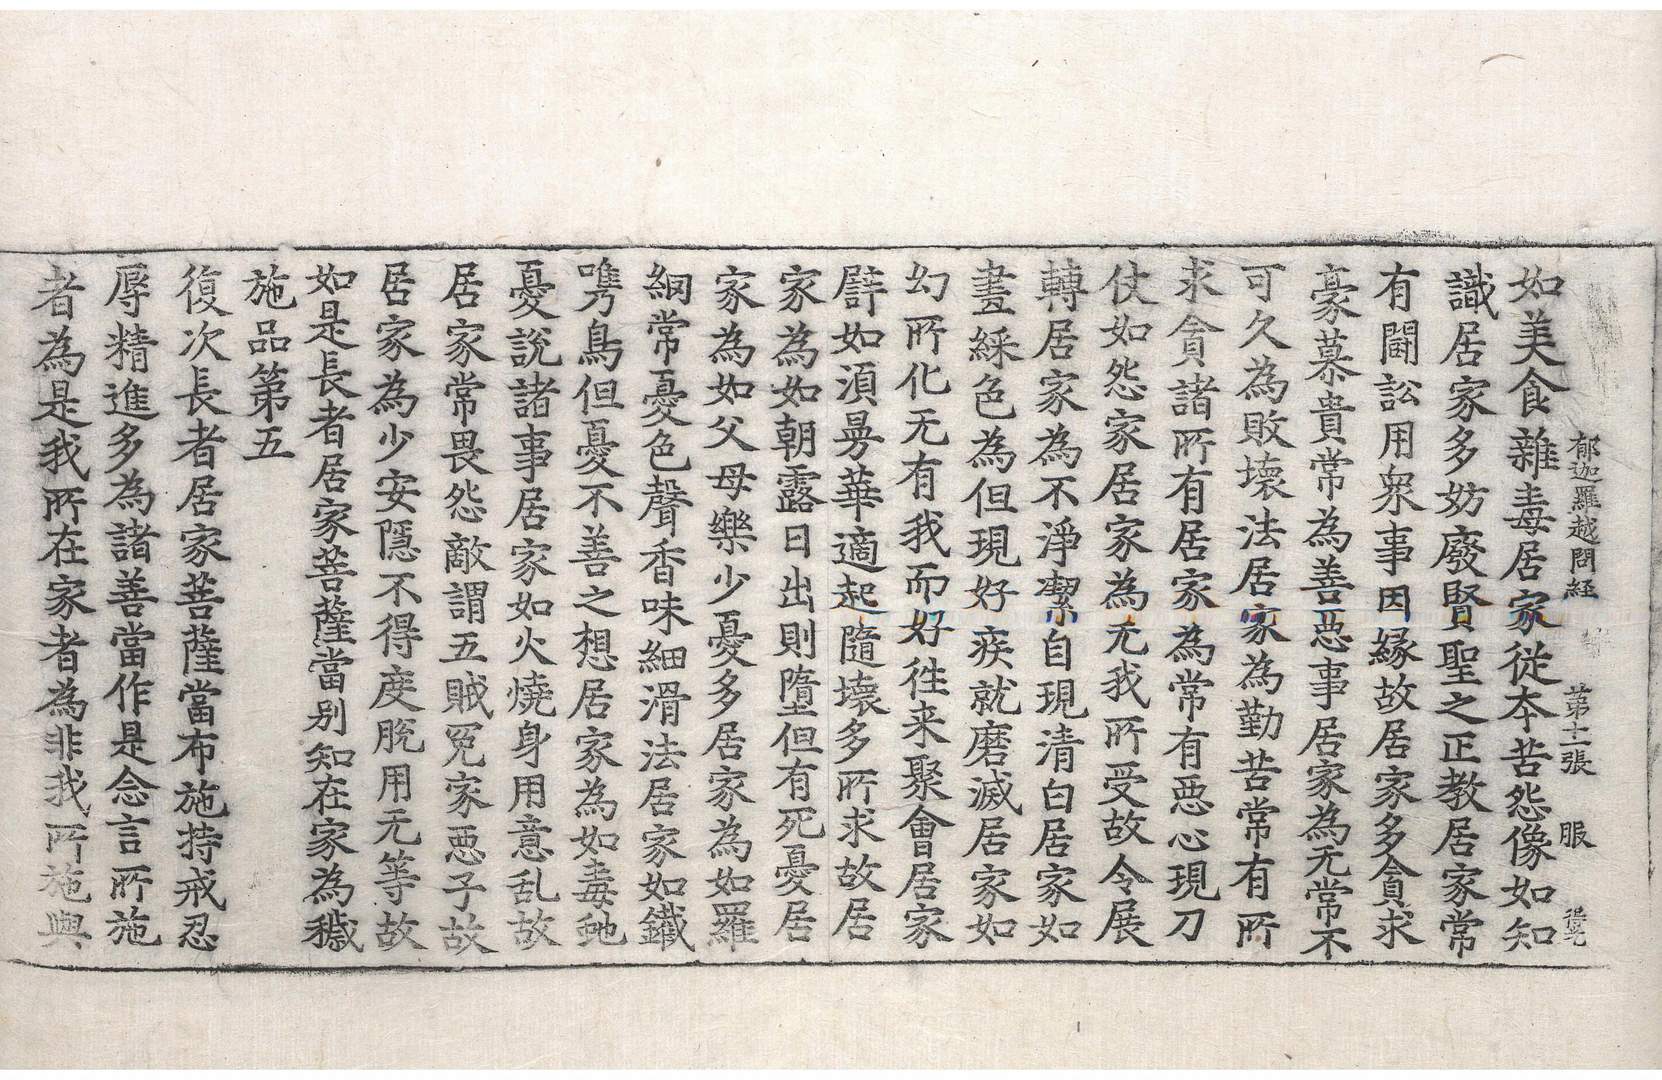 郁迦羅越問経　第十二張　服
如美食雜毒居家従夲苦怨像如知
識居家多妨廢賢聖之正教居家常
有鬪訟用衆事因縁故居家多貪求
豪慕貴常為善惡事居家為无常不
可久為敗壞法居家為勤苦常有所
求貪諸所有居家為常有惡心現刀
仗如怨家居家為无我所受故令展
轉居家為不淨潔自現清白居家如
畫綵色為但現好疾就磨滅居家如
幻所化无有我而好徃来聚會居家
譬如湏曼華適起隨壞多所求故居
家為如朝露日出則墮但有死憂居
家為如父母樂少憂多居家為如羅
網常憂色聲香味細滑法居家如鐵
㗱鳥但憂不善之想居家為如毒虵
憂說諸事居家如火燒身用意乱故
居家常畏怨敵謂五賊冤家惡子故
居家為少安隱不得度脫用无等故
如是長者居家菩薩當别知在家為穢
施品第五
復次長者居家菩薩當布施持戒忍
辱精進多為諸善當作是念言所施
者為是我所在家者為非我所施與